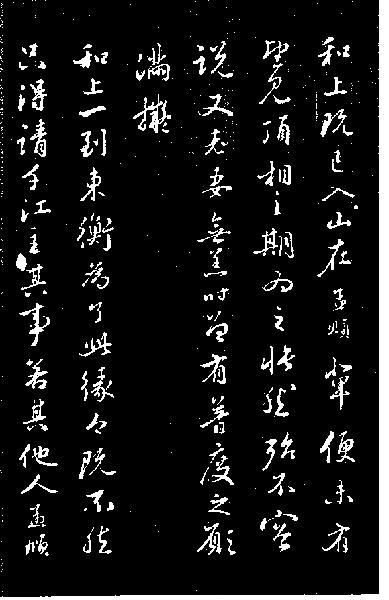 和上既已入山在孟頫輩便未有
望見頂相之期為之悵然殆不容
說又老妻無恙時曾有普度之願
滿擬
和上一到東衡為了此緣今既不然
只得請千江主其事若其他人孟頫